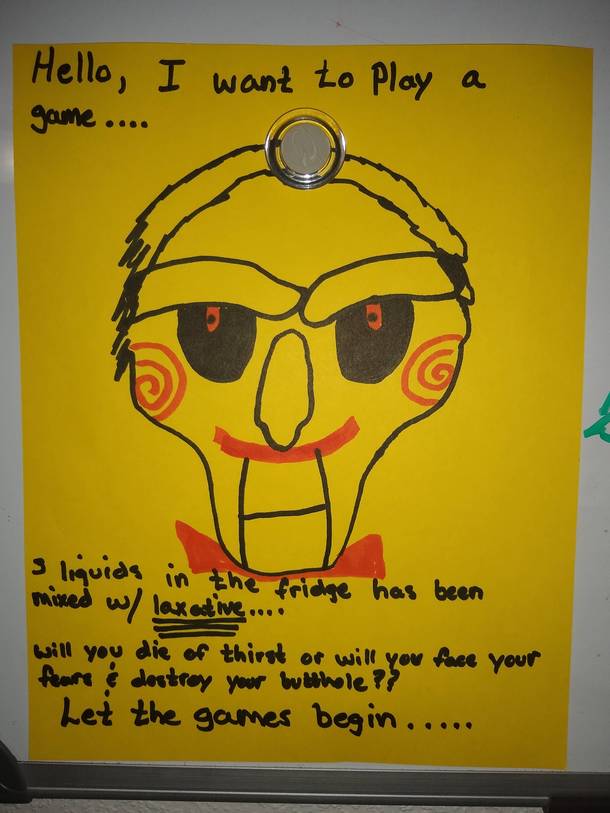 Hello, I want to Play a
game....
3 liquids in the fridge has been
mixed w/ laxative....
will you die of thirst or will you face your
fears & destroy your butthole??
Let the games begin.....